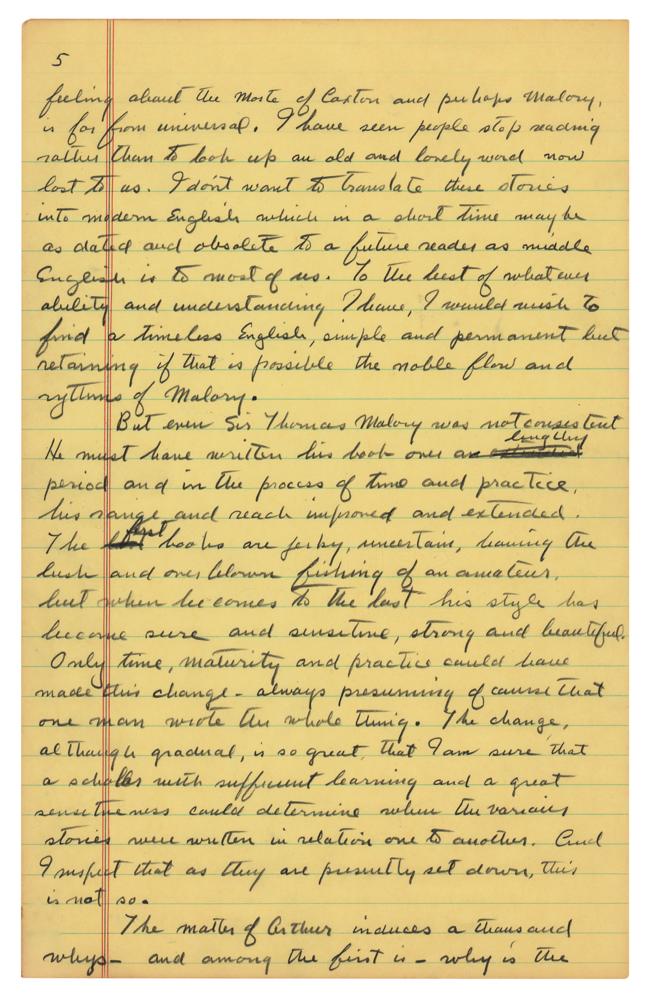 5
feeling about the Morte of Caxton and perhaps Malory,
is far from universal. I have seen people stop reading
rather than to look up an old and lovely word now
lost to us. I don't want to translate these stories
into modern English which in a short time may be
as dated and obsolete to a future reader as middle
English is to most of us. To the best of whatever
ability and understanding I have, I would wish to
find a timeless English, simple and permanent but
retaining if that is possible the noble flow and
rythms of Malory.
But even Sir Thomas Malory was not consistent
lengthy
He must have written his book over a
period and in the process of time and practice,
his range and reach improved and extended.
first
The books are jerky, uncertain, having the
lush and over blown fishing of an amateur,
but when he comes to the last his style has
become sure and sensitive, strong and beautiful.
Only time, maturity and practice could have
made this change - always presuming of course that
one man wrote the whole thing. The change,
although gradual, is so great, that I am sure that
a scholar with sufficient learning and a great
sensitiveness could determine when the various
stories were written in relation one to another. And
I suspect that as they are presently set down, this
is not so.
The matter of Arthur induces a thousand
whys - and among the first is - why is the